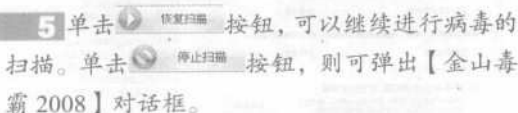 5 单击 恢复扫描 按钮，可以继续进行病毒的
扫描。单击 停止扫描 按钮，则可弹出【金山毒
霸 2008】对话框。